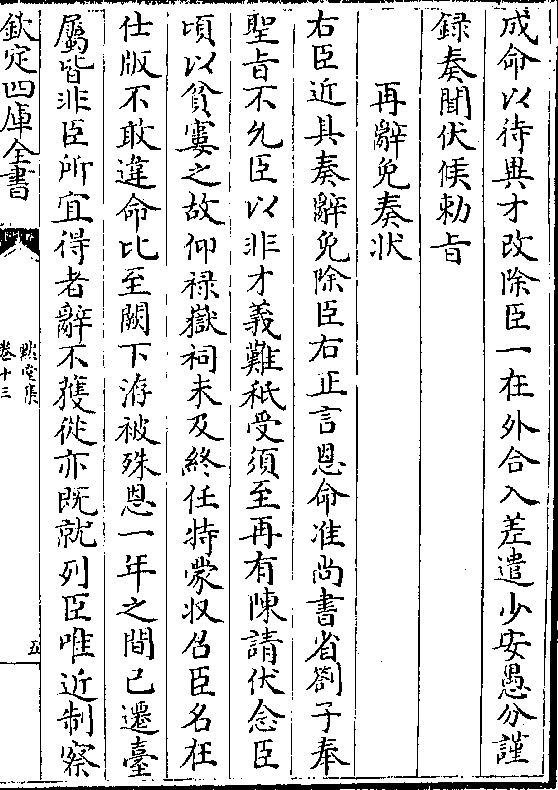 成命以待異才改除臣一在外合入差遣少安愚分謹
録奏聞伏候勅旨
再辭免奏状
右臣近具奏辭免除臣右正言恩命准尚書省劄子奉
聖旨不允臣以非才義難秪受須至再有陳請伏念臣
頃以貧寠之故仰禄嶽祠未及終任特蒙收召臣名在
仕版不敢違命比至闕下洊被殊恩一年之間已遷臺
屬皆非臣所宜得者辭不獲從亦既就列臣唯近制察
欽定四庫全書
卷十三
五